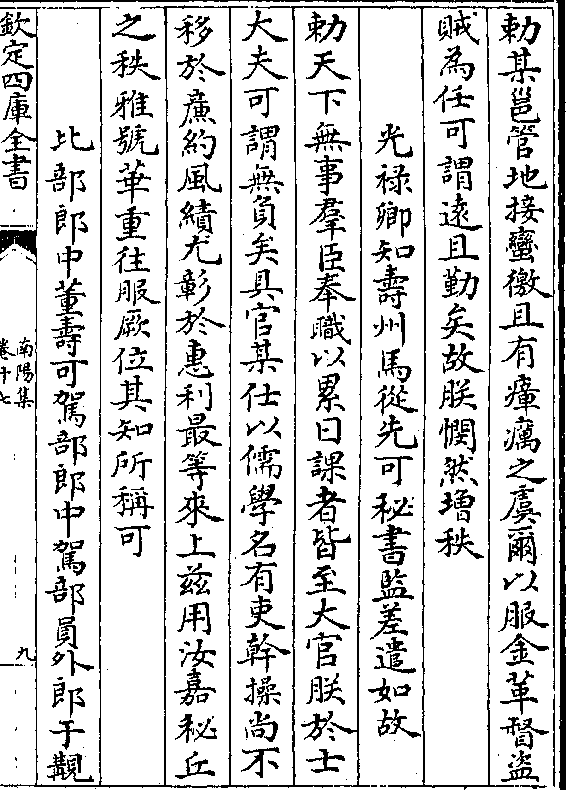 勅某邕管地接蠻徼且有瘴癘之虞爾以服金革督盗
賊為任可謂遠且勤矣故朕憫然增秩
光禄卿知壽州馬從先可秘書監差遣如故
勅天下無事羣臣奉職以累日課者皆至大官朕於士
大夫可謂無負矣具官某仕以儒學名有吏幹操尚不
移於㢘約風績尤彰於惠利最等來上兹用汝嘉秘丘
之秩雅號華重往服厥位其知所稱可
比部郎中董壽可駕部郎中駕部員外郎于覯
欽定四庫全書
南陽集
卷十七
九